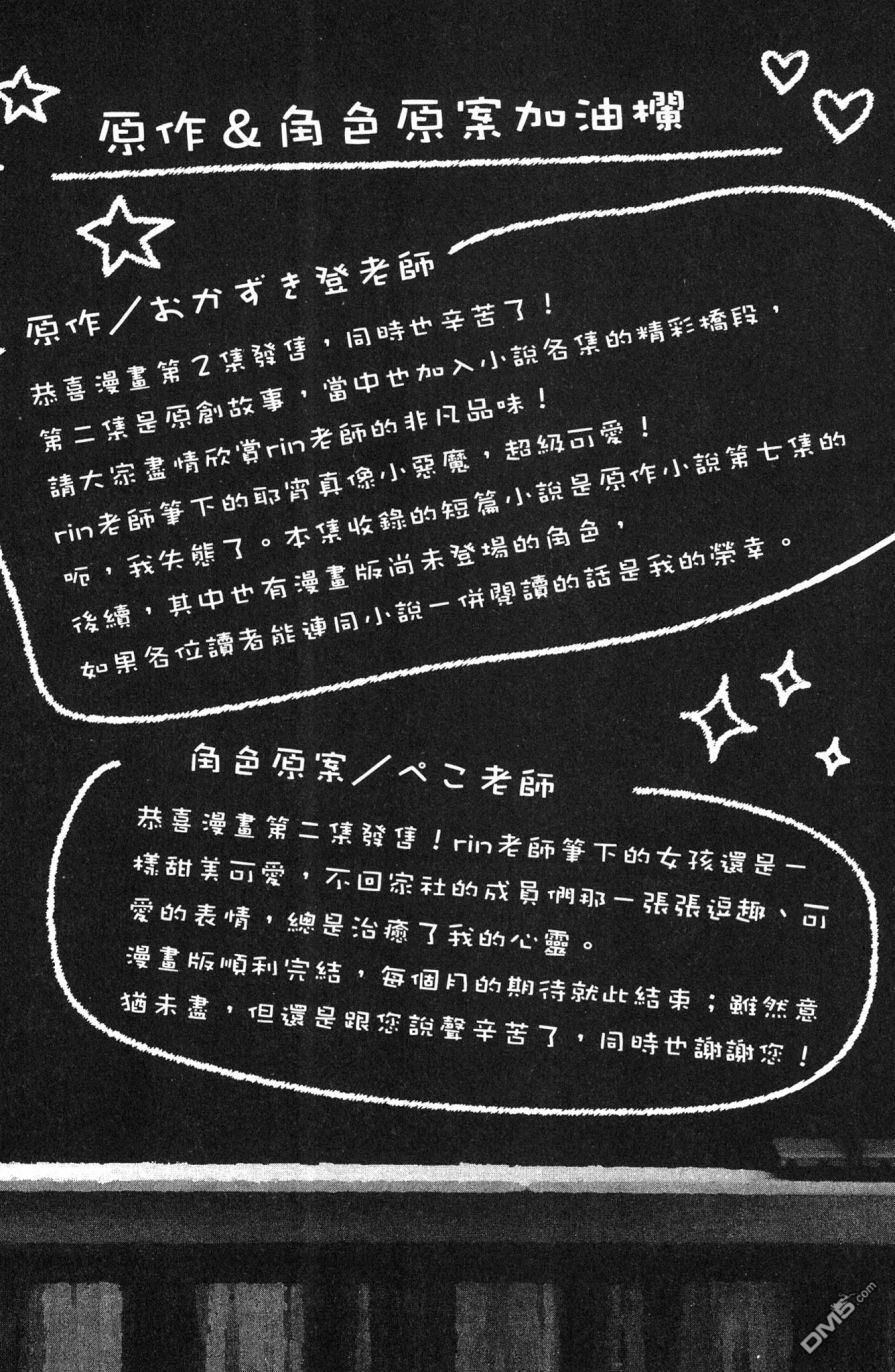 原作&角色原案加油欄
原作／おかずき登老師
恭喜漫畫第2集發售，同時也辛苦了！
第二集是原創故事，當中也加入小說各集的精彩橋段，
請大家盡情欣賞rin老師的非凡品味！
rin老師筆下的耶宵真像小惡魔，超級可愛！
呃，我失態了。本集收錄的短篇小說是原作小說第七集的
後續，其中也有漫畫版尚未登場的角色，
如果各位讀者能連同小說一併閱讀的話是我的榮幸。
角色原案／ぺこ老師
恭喜漫畫第二集發售！rin老師筆下的女孩還是一
樣甜美可愛，不回家社的成員們那一張張逗趣、可
愛的表情，總是治癒了我的心靈。
漫畫版順利完結，每個月的期待就此結束；雖然意
猶未盡，但還是跟您說聲辛苦了，同時也謝謝您！
DM5.com